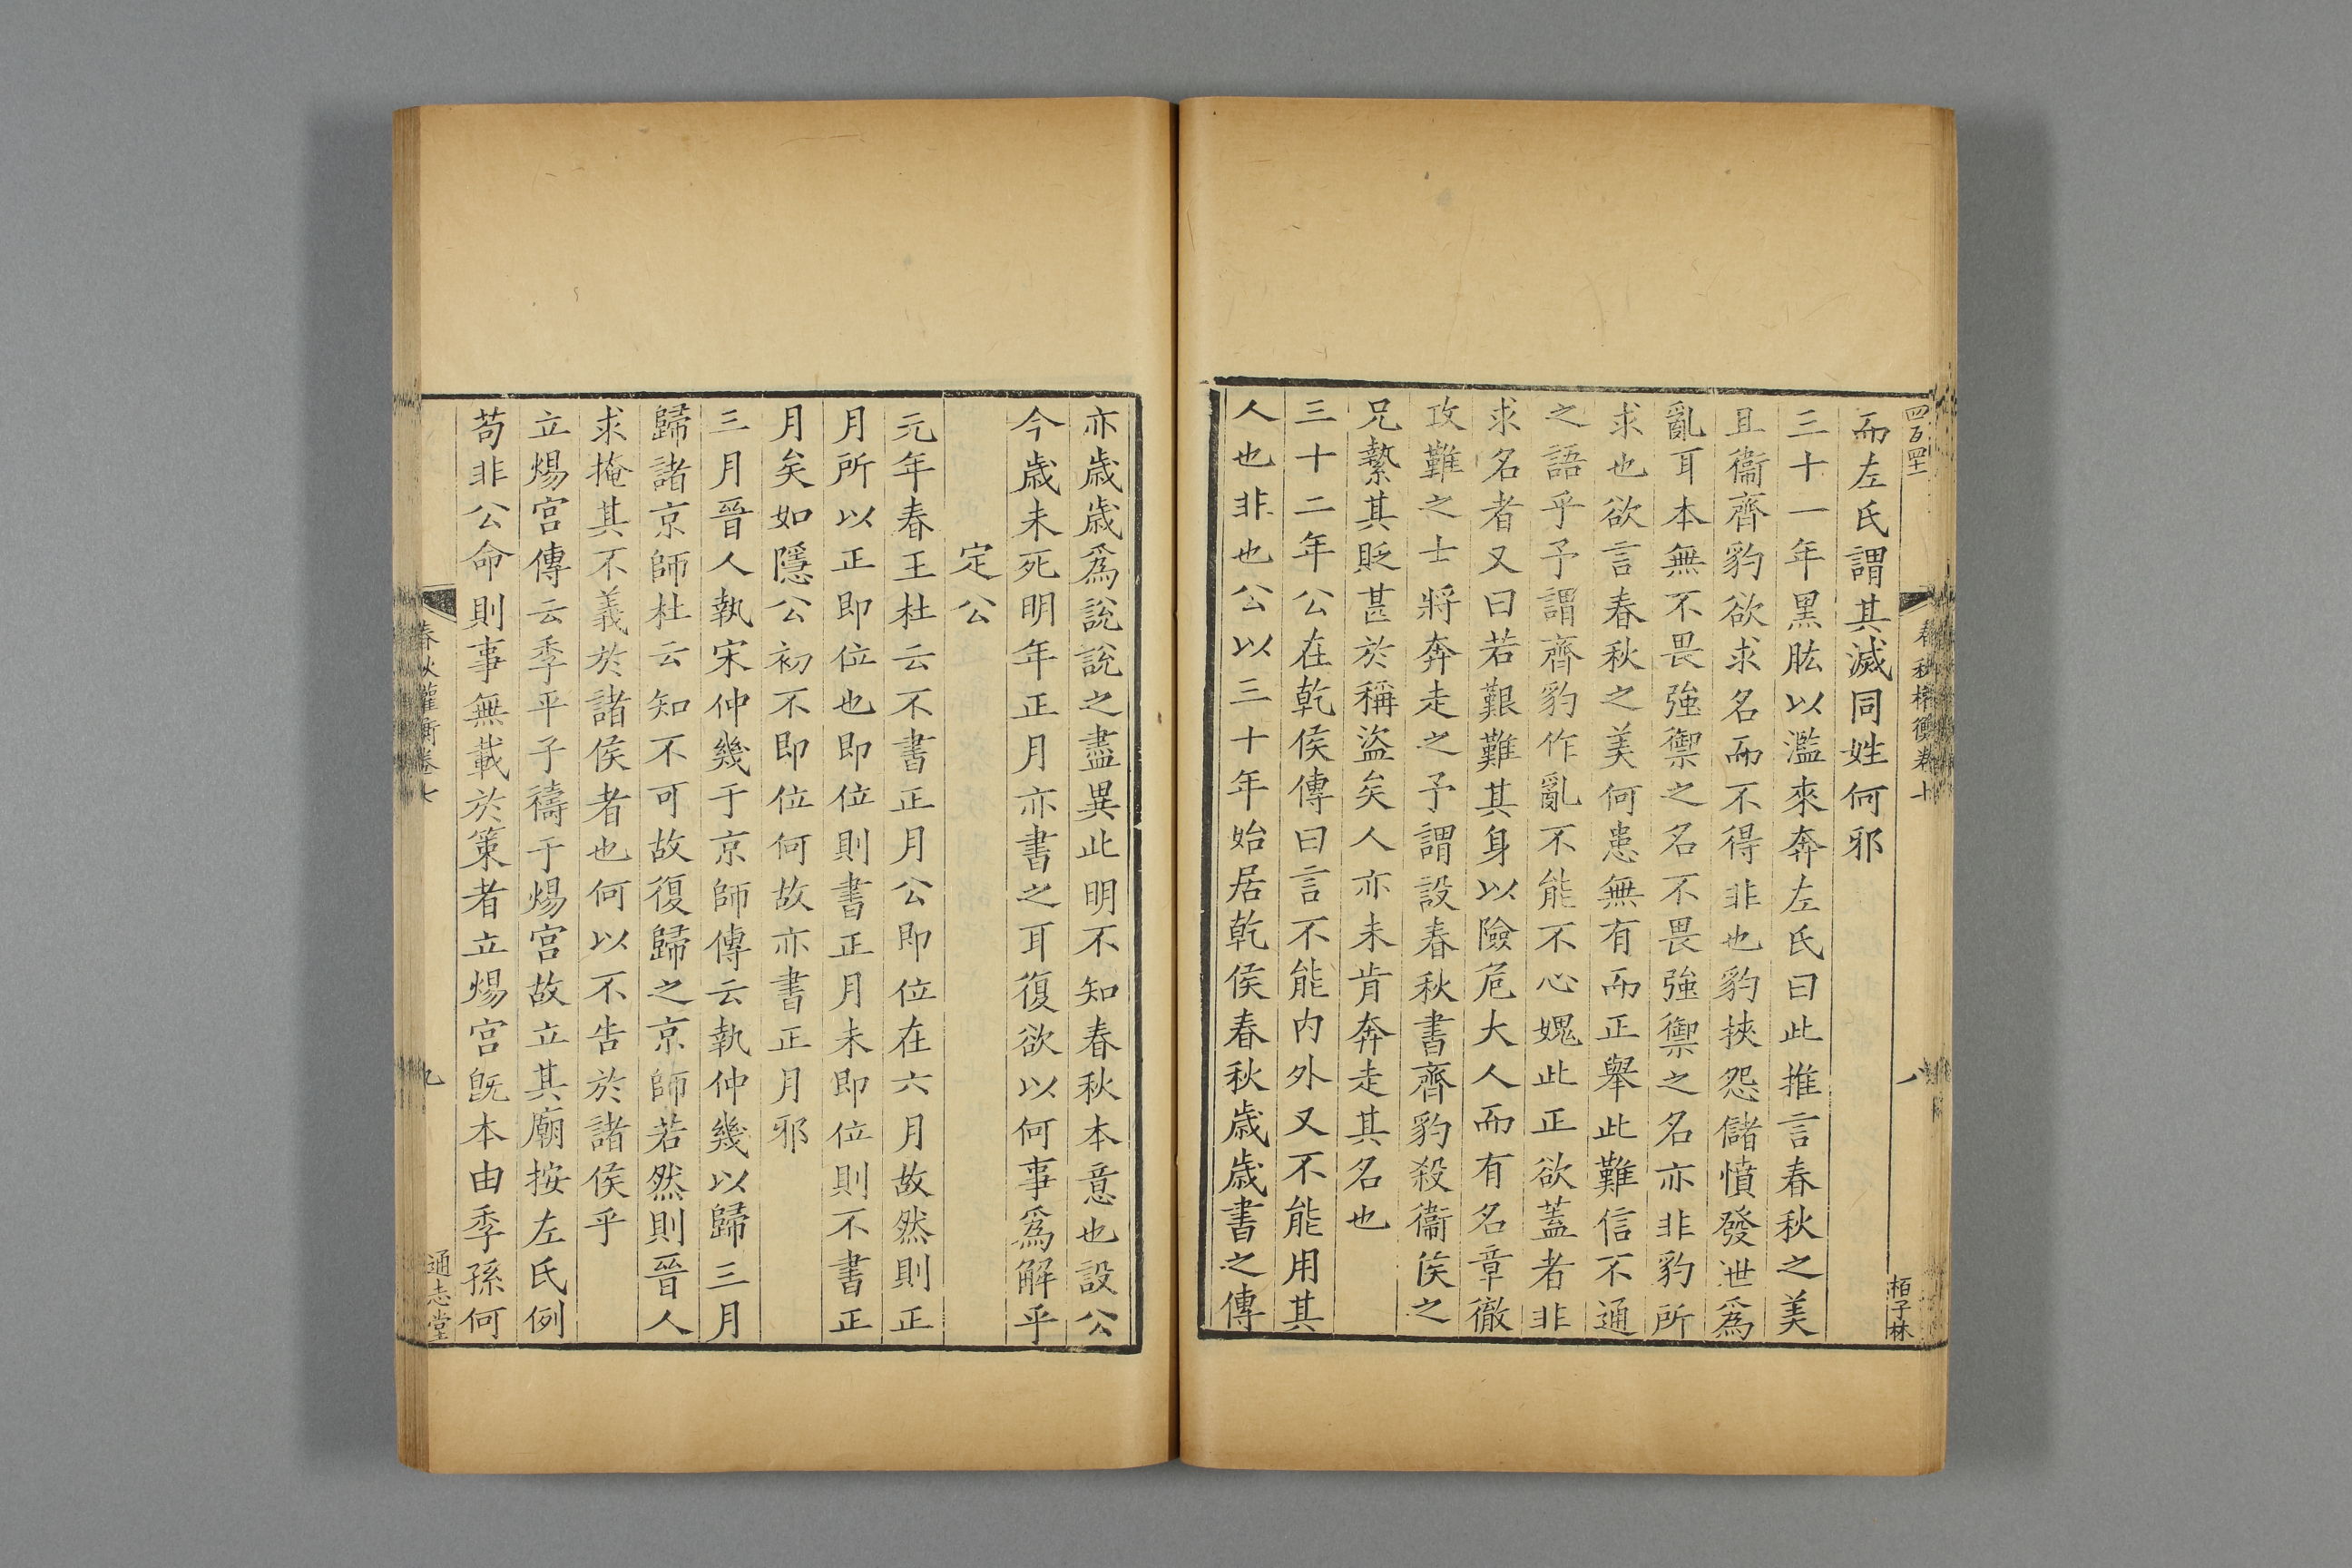 而左氏謂其滅同姓何邪
三十一年黒肱以濫來奔左氏曰此推言春秋之美
且衞齊豹欲求名而不得非也豹挾怨儲憤發泄爲
亂耳本無不畏強禦之名不畏強禦之名亦非豹所
求也欲言春秋之美何患無有而正舉此難信不通
之語乎予謂齊豹作亂不能不心媿此正欲蓋者非
求名者又曰若艱難其身以險危大人而有名章徹
攻難之士將奔走之予謂設春秋書齊豹殺衞侯之
兄縶其貶甚於稱盜矣人亦未肯奔走其名也
三十二年公在乾侯傳曰言不能内外又不能用其
人也非也公以三十年始居乾侯春秋歳歳書之傳
亦歳歳爲說說之盡異此明不知春秋本意也設公
今歳未死明年正月亦書之耳復欲以何事爲解乎
定公
元年春王杜云不書正月公即位在六月故然則正
月所以正即位也即位則書正月未即位則不書正
月矣如隱公初不即位何故亦書正月邪
三月晉人執宋仲幾于京師傳云執仲幾以歸三月
歸諸京師杜云知不可故復歸之京師若然則晉人
求掩其不義於諸侯者也何以不告於諸侯乎
立煬宮傳云季平子禱于煬宮故立其廟按左氏例
苟非公命則事無載於策者立煬宮旣本由季孫何
春秋權衡卷七
九
通志堂
春秋權衡卷七
八
栢子林